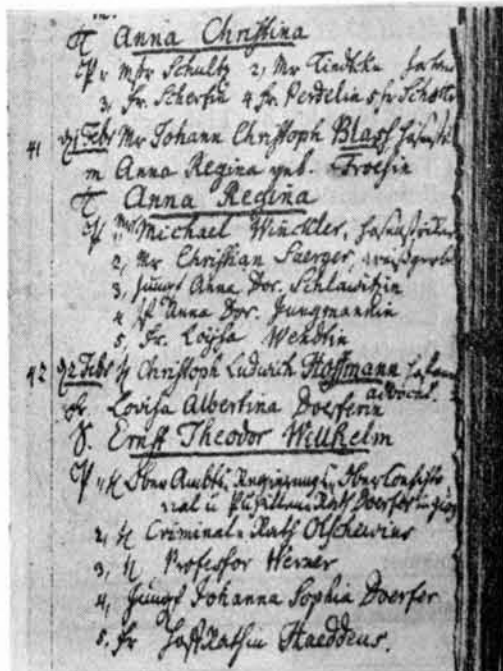 m.
T. Anna Christina
P. 1, Mstr Schultz 2, Mr Tiedtke
3, Fr. Scherfin 4 Fr. Perdelin 5 fr
41 d 1 Febr Mr Johann Christoph Blass
m Anna Regina geb. Froesin
T. Anna Regina
P. 1, Mr Michael Winckler,
2, Mr Christian Saerger,
3, Jungf Anna Dor. Schlawitzin
4 Jf Anna Dor. Jungmannin
5, Fr. Loysa Wendlin
42 d 2 Febr H Christoph Ludwich Hoffmann
advocat.
Fr. Lovisa Albertina Doerferin
S. Ernst Theodor Willhelm
P. 1, H Ober Ambts, Regierungs,
u Rath Doerfer
2, H Criminal-Rath Olschewius
3, H Professor Werner
4, Jungf Johanna Sophia Doerfer
5. Fr Hoff Rathin Haeddeus.